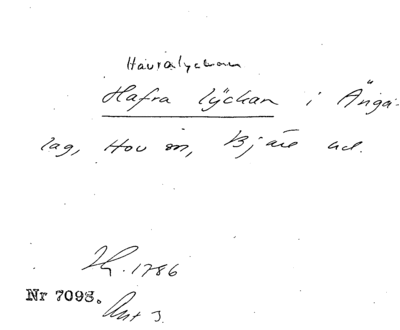 Havralyckan
Hafra lÿckan i Änga-
lag, Hov sn, Bjäre hd.
1786
Nr 7098.
Akt 3.